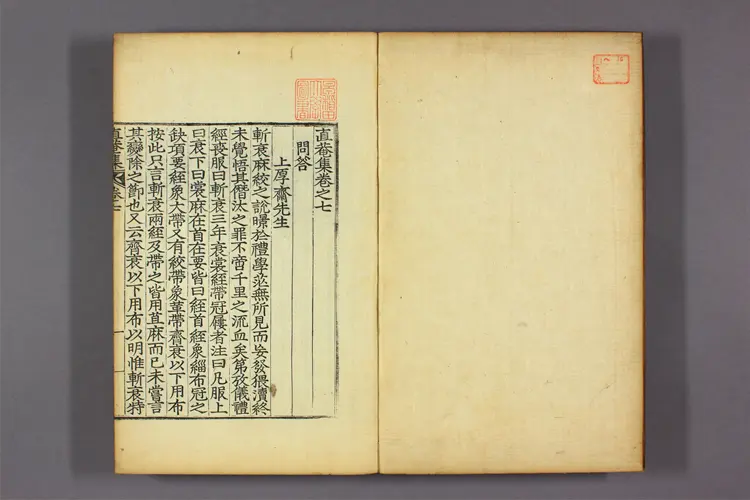 直菴集卷之七
問答
上厚齋先生
斬衰麻絞之說曚於禮學並無所見而妄發猥瀆終
未覺悟其僭汰之罪不啻千里之流血矣第攷儀禮
經喪服曰斬衰三年衰裳絰帶冠屨者注曰凡服上
曰衰下曰裳麻在首在要皆曰絰首絰象緇布冠之
缺項要絰象大帶又有絞帶象革帶齊衰以下用布
按此只言斬衰兩絰及帶之皆用苴麻而已未嘗言
其變除之節也又云齊衰以下用布以明惟斬衰特
直菴集 卷七 一